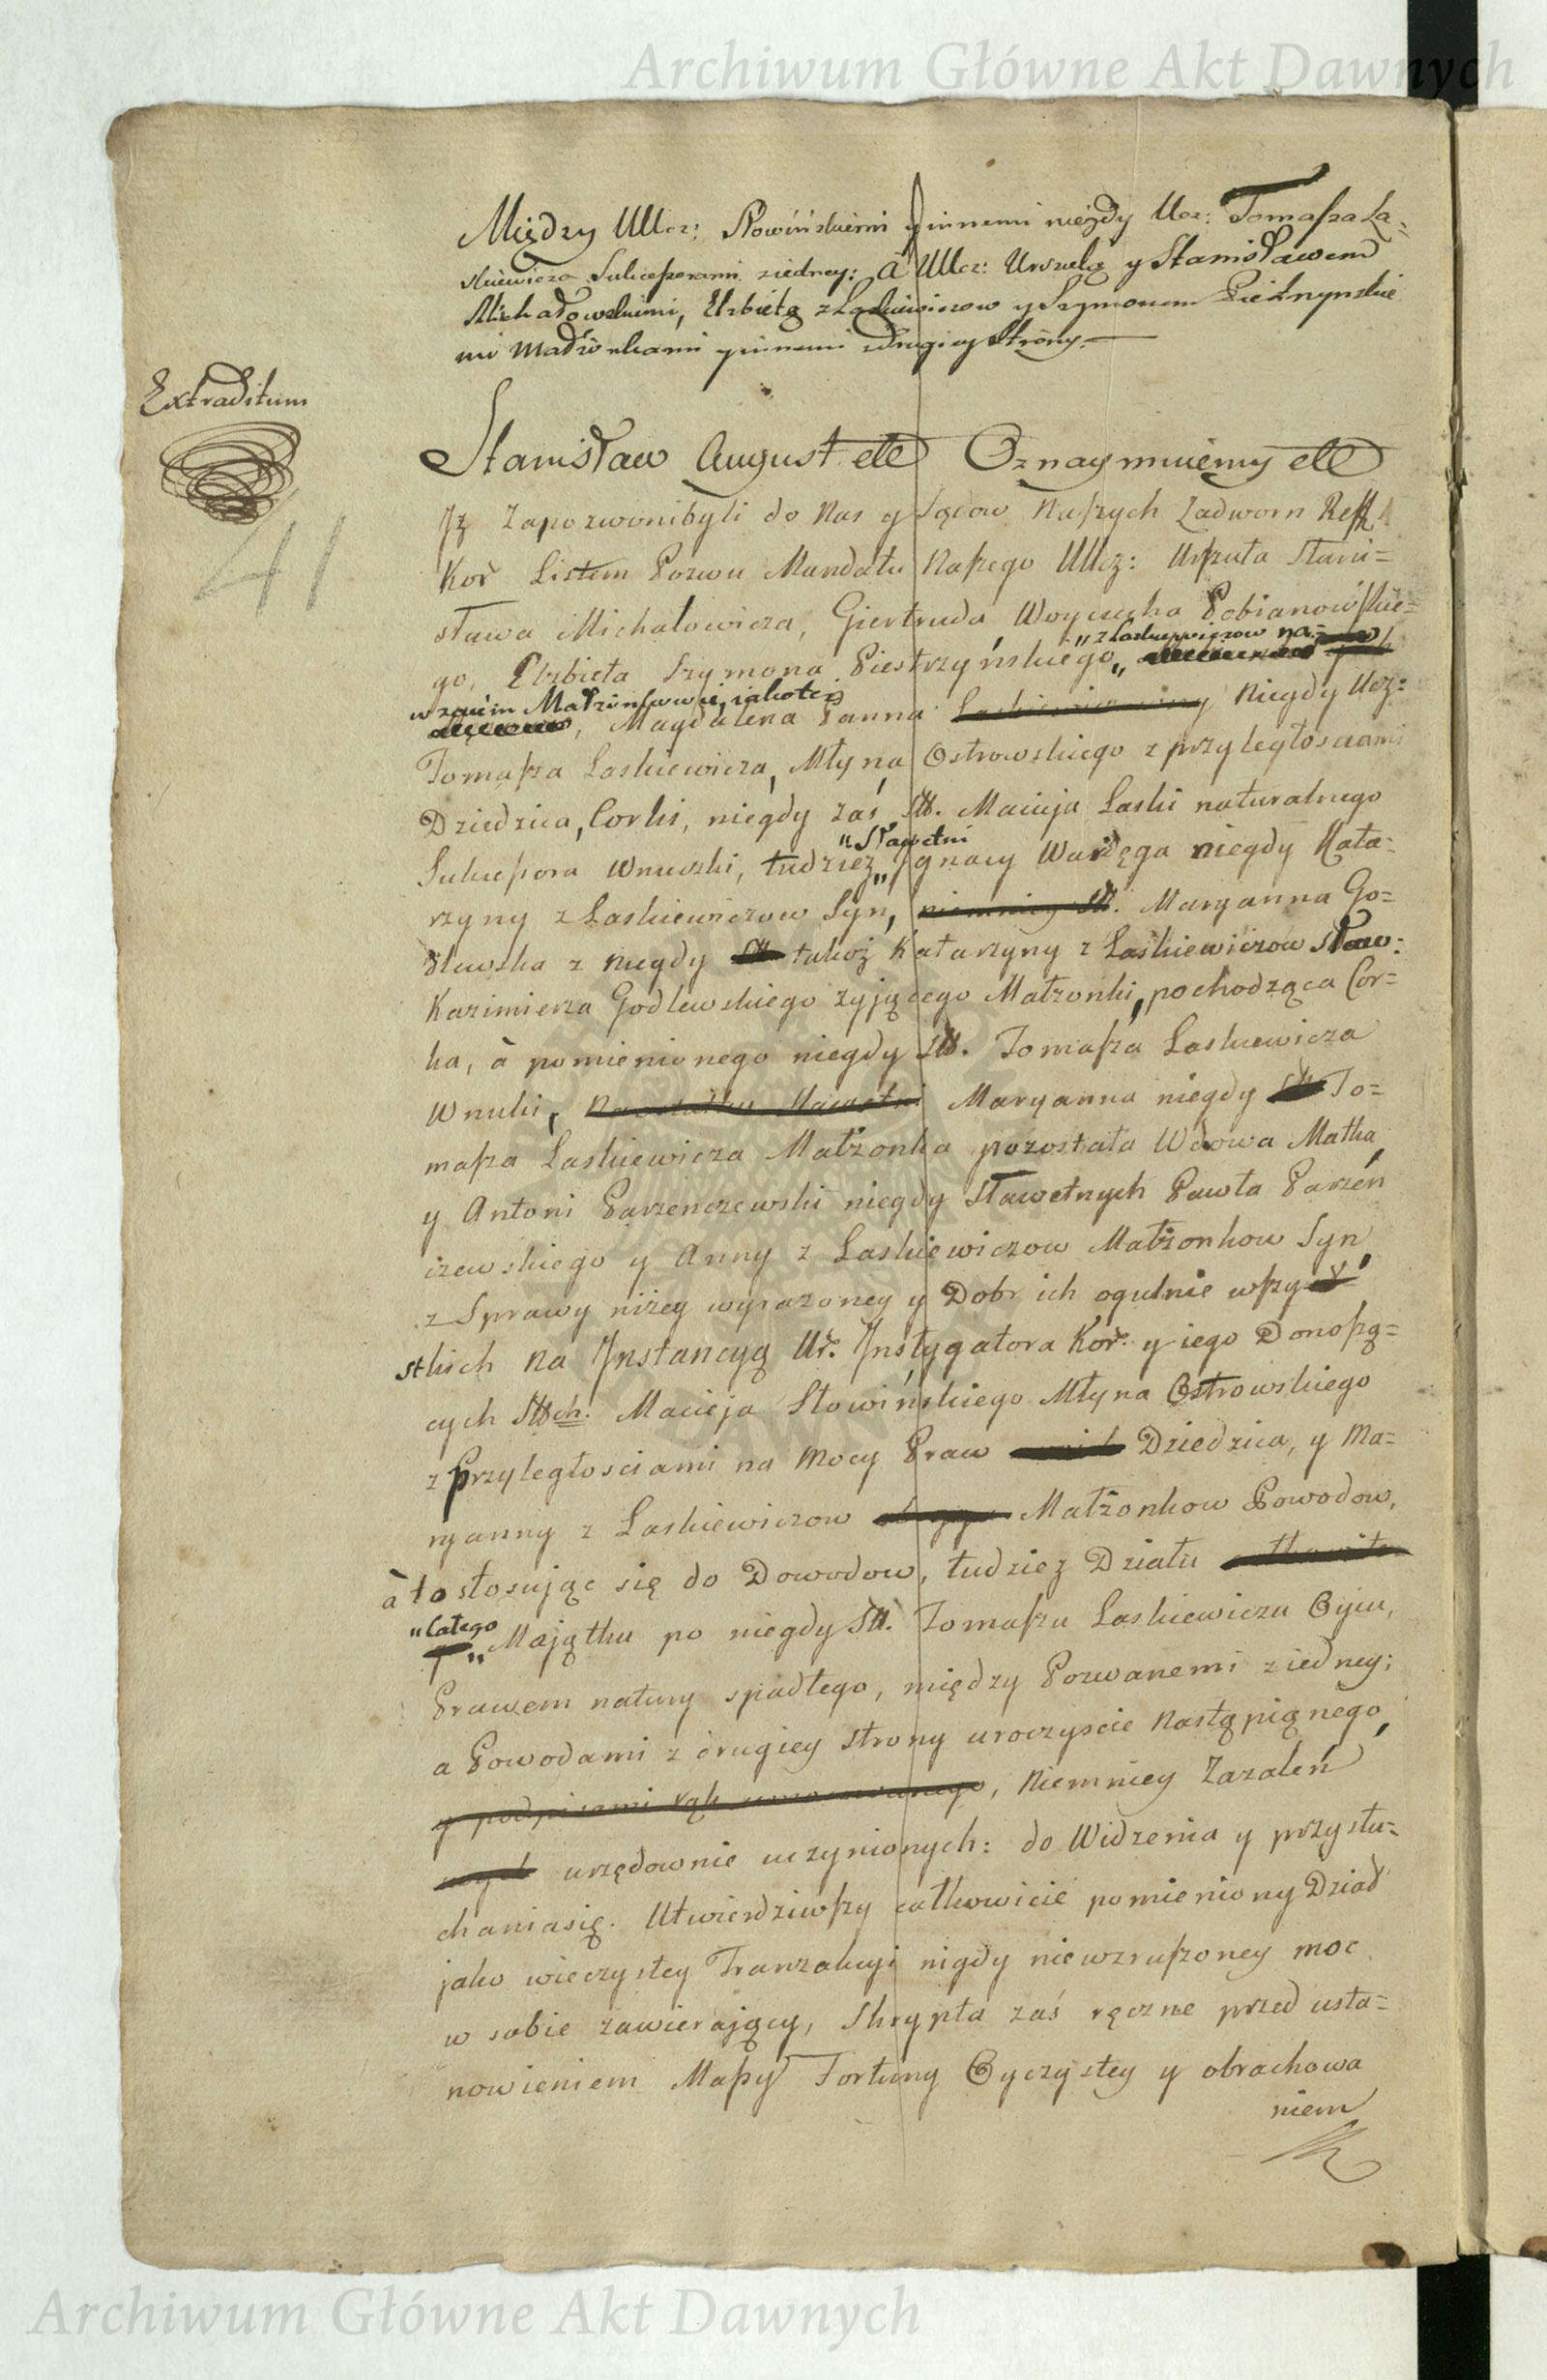 Archiwum Główne Akt Dawnych
Między UUcz: Słowińskiemi y innemi niegdy Ucz: Tomasza La=
skiewicza Sukcessorami z iedney: à UUcz: Urszulą y Stanisławem
Michałowskiemi, Elzbietą z Laskiewiczow y Szymonem Piestrzynskie
mi Małżonkami y innemi z drugiey Strony.
Extraditum
41
Stanisław August etc Oznaymuiemy etc
Jż Zapozwonibyli do Nas y Sądow Naszych Zadworn Reff
Kor Listem Pozwu Mandatu Naszego UUcz: Urszula Stani=
sława Michałowicza, Giertruda Woyciecha Pobianowskie=
go, Elzbieta Szymona Piestrzyńskiego „ „z Laskiewiczow na=
w zaiem Małżonkowie, iakoteż, Magdalena Panna Niegdy Ucz:
Tomasza Laskiewicza, Młyna Ostrowskiego z przyległosciami
Dziedzica, Corki, niegdy zaś Sł. Macieja Laski naturalnego
Sukcessora Wnuczki, tudziez „ „Sławetni Jgnacy Wardęga niegdy Kata=
rzyny z Laskiewiczow Syn, Maryanna Go=
dlewska z niegdy takoż Katarzyny z Laskiewiczow Sław:
Kazimierza Godlewskiego zyjącego Małzonki, pochodząca Cor=
ka, à pomienionego niegdy Sł. Tomasza Laskiewicza
Wnuki, Maryanna niegdy To=
masza Laskiewicza Małżonka pozostała Wdowa Matka,
y Antoni Parzenczewski niegdy Sławetnych Pawła Parzeń
czewskiego y Anny z Laskiewiczow Małżonkow Syn,
z Sprawy niżey wyrazoney y Dobr ich ogulnie wszy
stkich na Jnstancyą Ur. Jnstygatora Kor. y iego Donoszą=
cych Słch. Macieja Słowińskiego Młyna Ostrowskiego
z Przyległosciami na Mocy Praw Dziedzica, y Ma=
ryanny z Laskiewiczow Małżonkow Powodow,
à to stosując się do Dowodow, tudziez Działu
„Całego „ Majątku po niegdy Sł. Tomaszu Laskiewiczu Oycu,
Prawem natury spadłego, między Pozwanemi z iedney;
a Powodami z drugiey strony uroczyscie Nastąpionego,
y podpisami rąk umocowanego, Niemniey Zazaleń
urzędownie uczynionych: do Widzenia y przysłu=
chania się. Utwierdziwszy całkowicie pomieniony Dział
jako wieczystey Tranzakcyi nigdy niewzruszoney moc
w sobie zawierający, Skrypta zaś ręczne przed usta=
nowieniem Massy Fortuny Oyczystey y obrachowa
niem
Archiwum Główne Akt Dawnych